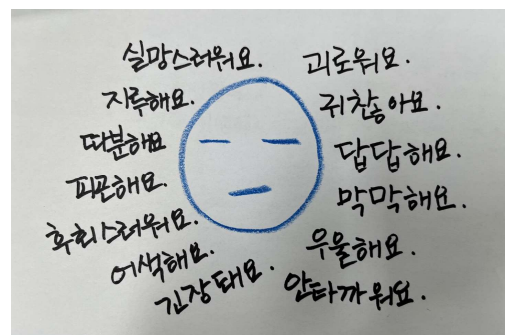 실망스러워요.
지루해요.
따분해요
피곤해요.
후회스러워요.
어색해요.
긴장돼요.
괴로워요.
귀찮아요.
답답해요.
막막해요.
우울해요.
안타까워요.